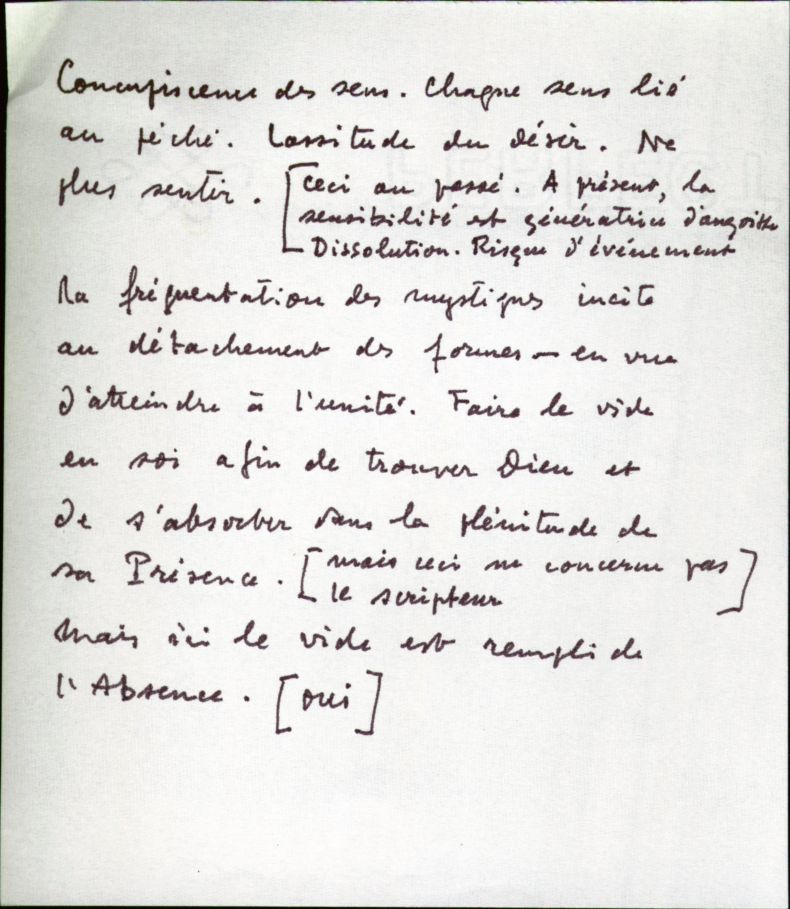 Concupiscence des sens. Chaque sens lié
au péché. Lassitude du désir. Ne
plus sentir. [Ceci au passé. A présent, la
sensibilité est génératrice d'angoisse
Dissolution. Risque d'événement
La fréquentation des mystiques incite
au détachement des formes – en vue
d'atteindre à l'unité. Faire le vide
en soi afin de trouver Dieu et
de s'absorber dans la plénitude de
sa Présence. [mais ceci ne concerne pas
le scripteur]
Mais ici le vide est rempli de
l'Absence. [oui]